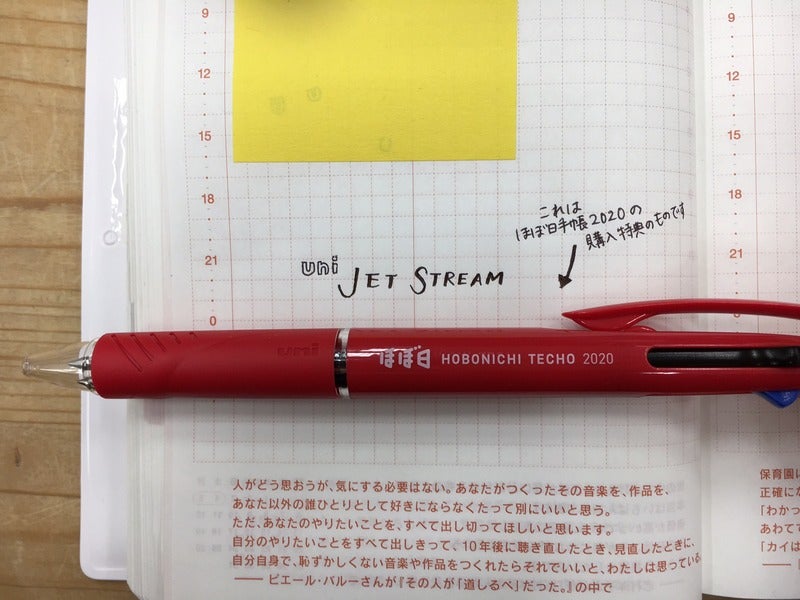 9
12
15
18
21
0
これは
ほぼ日手帳2020の
購入特典のものです
uni JET STREAM
uni
ほぼ日 HOBONICHI TECHO 2020
人がどう思おうが、気にする必要はない。あなたがつくったその音楽を、作品を、
あなた以外の誰ひとりとして好きにならなくたって別にいいと思う。
ただ、あなたのやりたいことを、すべて出し切ってほしいと思います。
自分のやりたいことをすべて出しきって、10年後に聴き直したとき、見直したときに、
自分自身で、恥ずかしくない音楽や作品をつくれたらそれでいいと、わたしは思っている。
── ピエール・バルーさんが『その人が「道しるべ」だった。』の中で
9
12
15
18
21
保育園に
正確にな
「わかっ
あわてす
「カイは